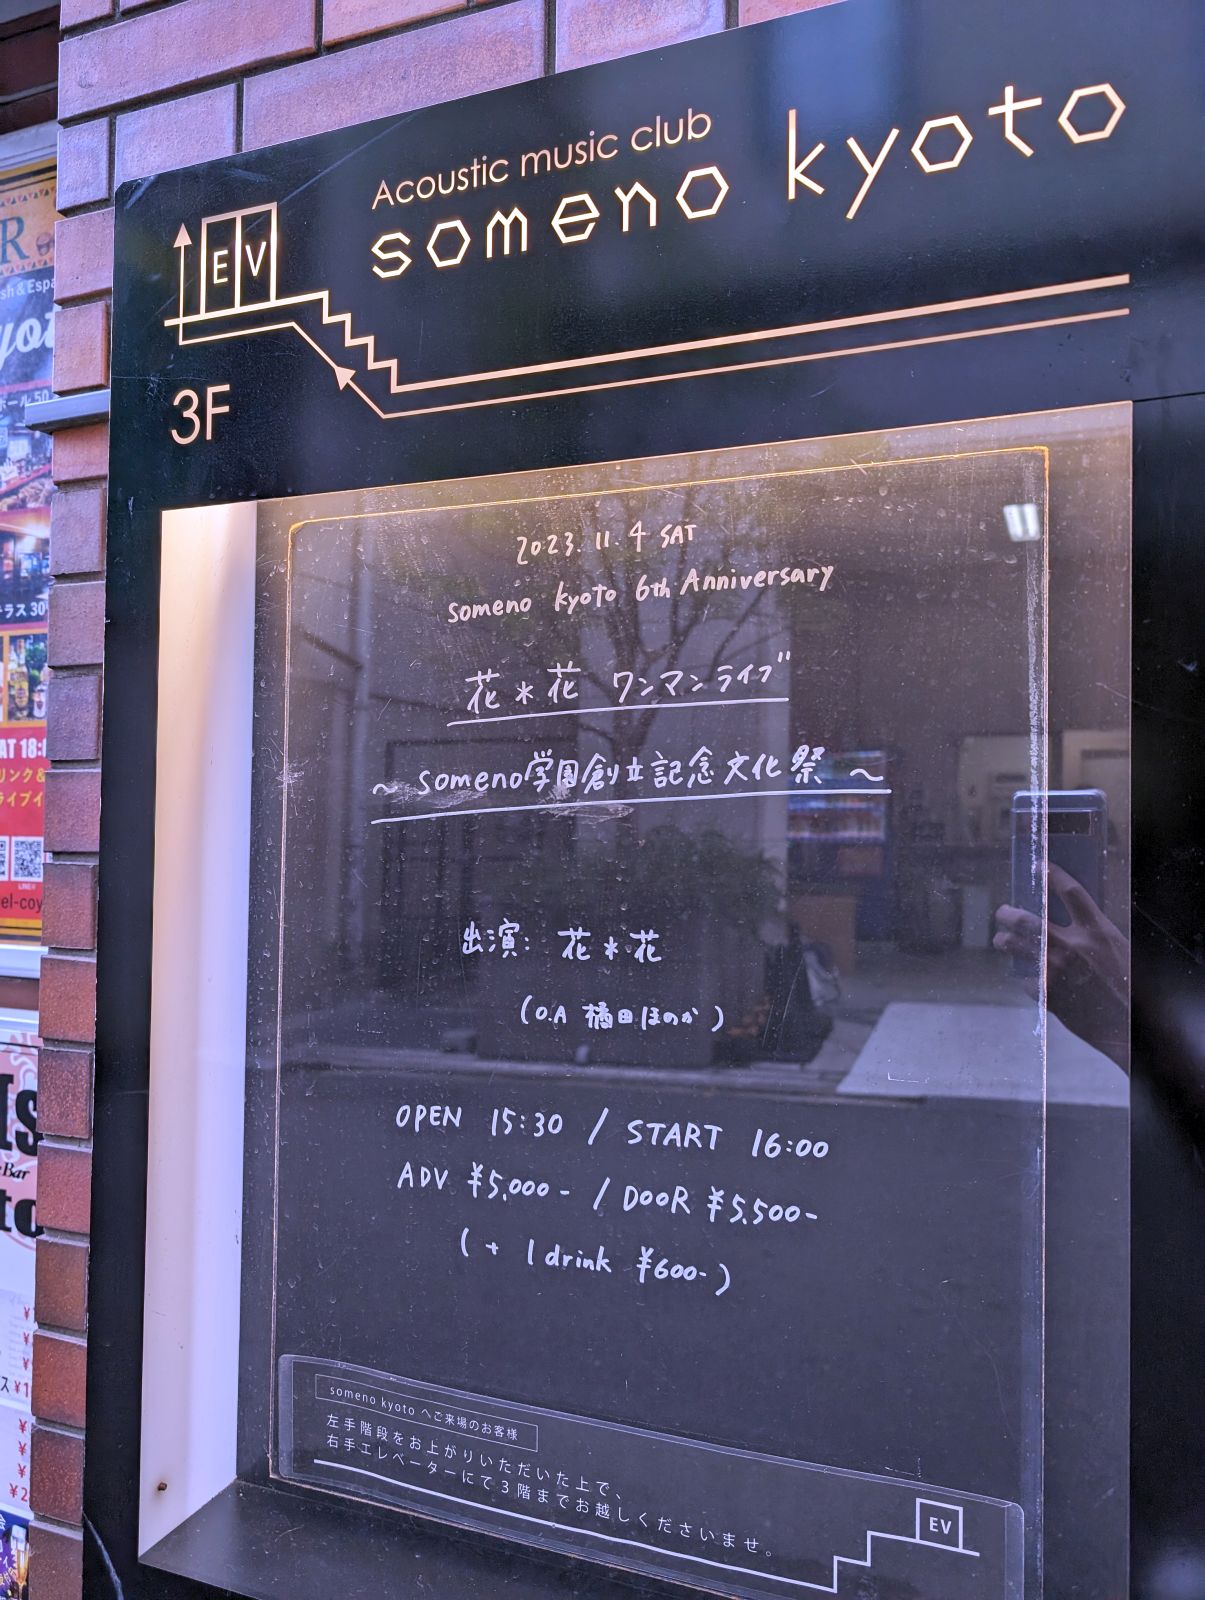 Acoustic music club
someno kyoto
EV
3F
2023. 11. 4 SAT
someno kyoto 6th Anniversary
花＊花 ワンマンライブ
～ someno学園創立記念文化祭 ～
出演: 花＊花
(O.A 橘田ほのか)
OPEN 15:30 / START 16:00
ADV ¥5,000- / DOOR ¥5,500-
( + 1 drink ¥600- )
someno kyoto へご来場のお客様
左手階段をお上がりいただいた上で、
右手エレベーターにて3階までお越しくださいませ。
EV